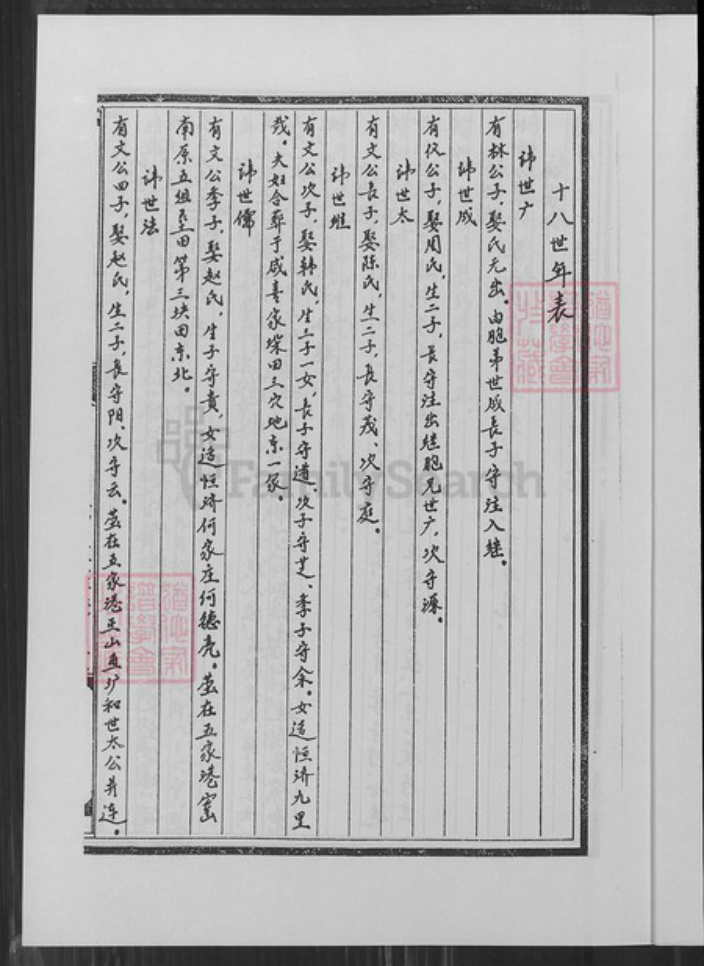 十八世年表
讳世广
有林公子，娶氏无出。由胞弟世成长子守注入继。
讳世成
有仪公子，娶周氏，生二子，长守注出继胞兄世广，次守源。
讳世太
有文公长子，娶陈氏，生二子，长守茂、次守庭。
讳世维
有文公次子，娶韩氏，生三子一女，长子守道、次子守芝、季子守余。女适恒济九里
我。夫妇合葬于戚喜家垛田三穴地东一冢。
讳世儒
有文公季子，娶赵氏，生子守贵，女适恒济何家庄何德亮。茔在五家港窑
南原五组垦田第三块田东北。
讳世法
有文公四子，娶赵氏，生二子，长守阳、次守云。茔在五家港王山鱼圹和世太公并连。
FamilySearch